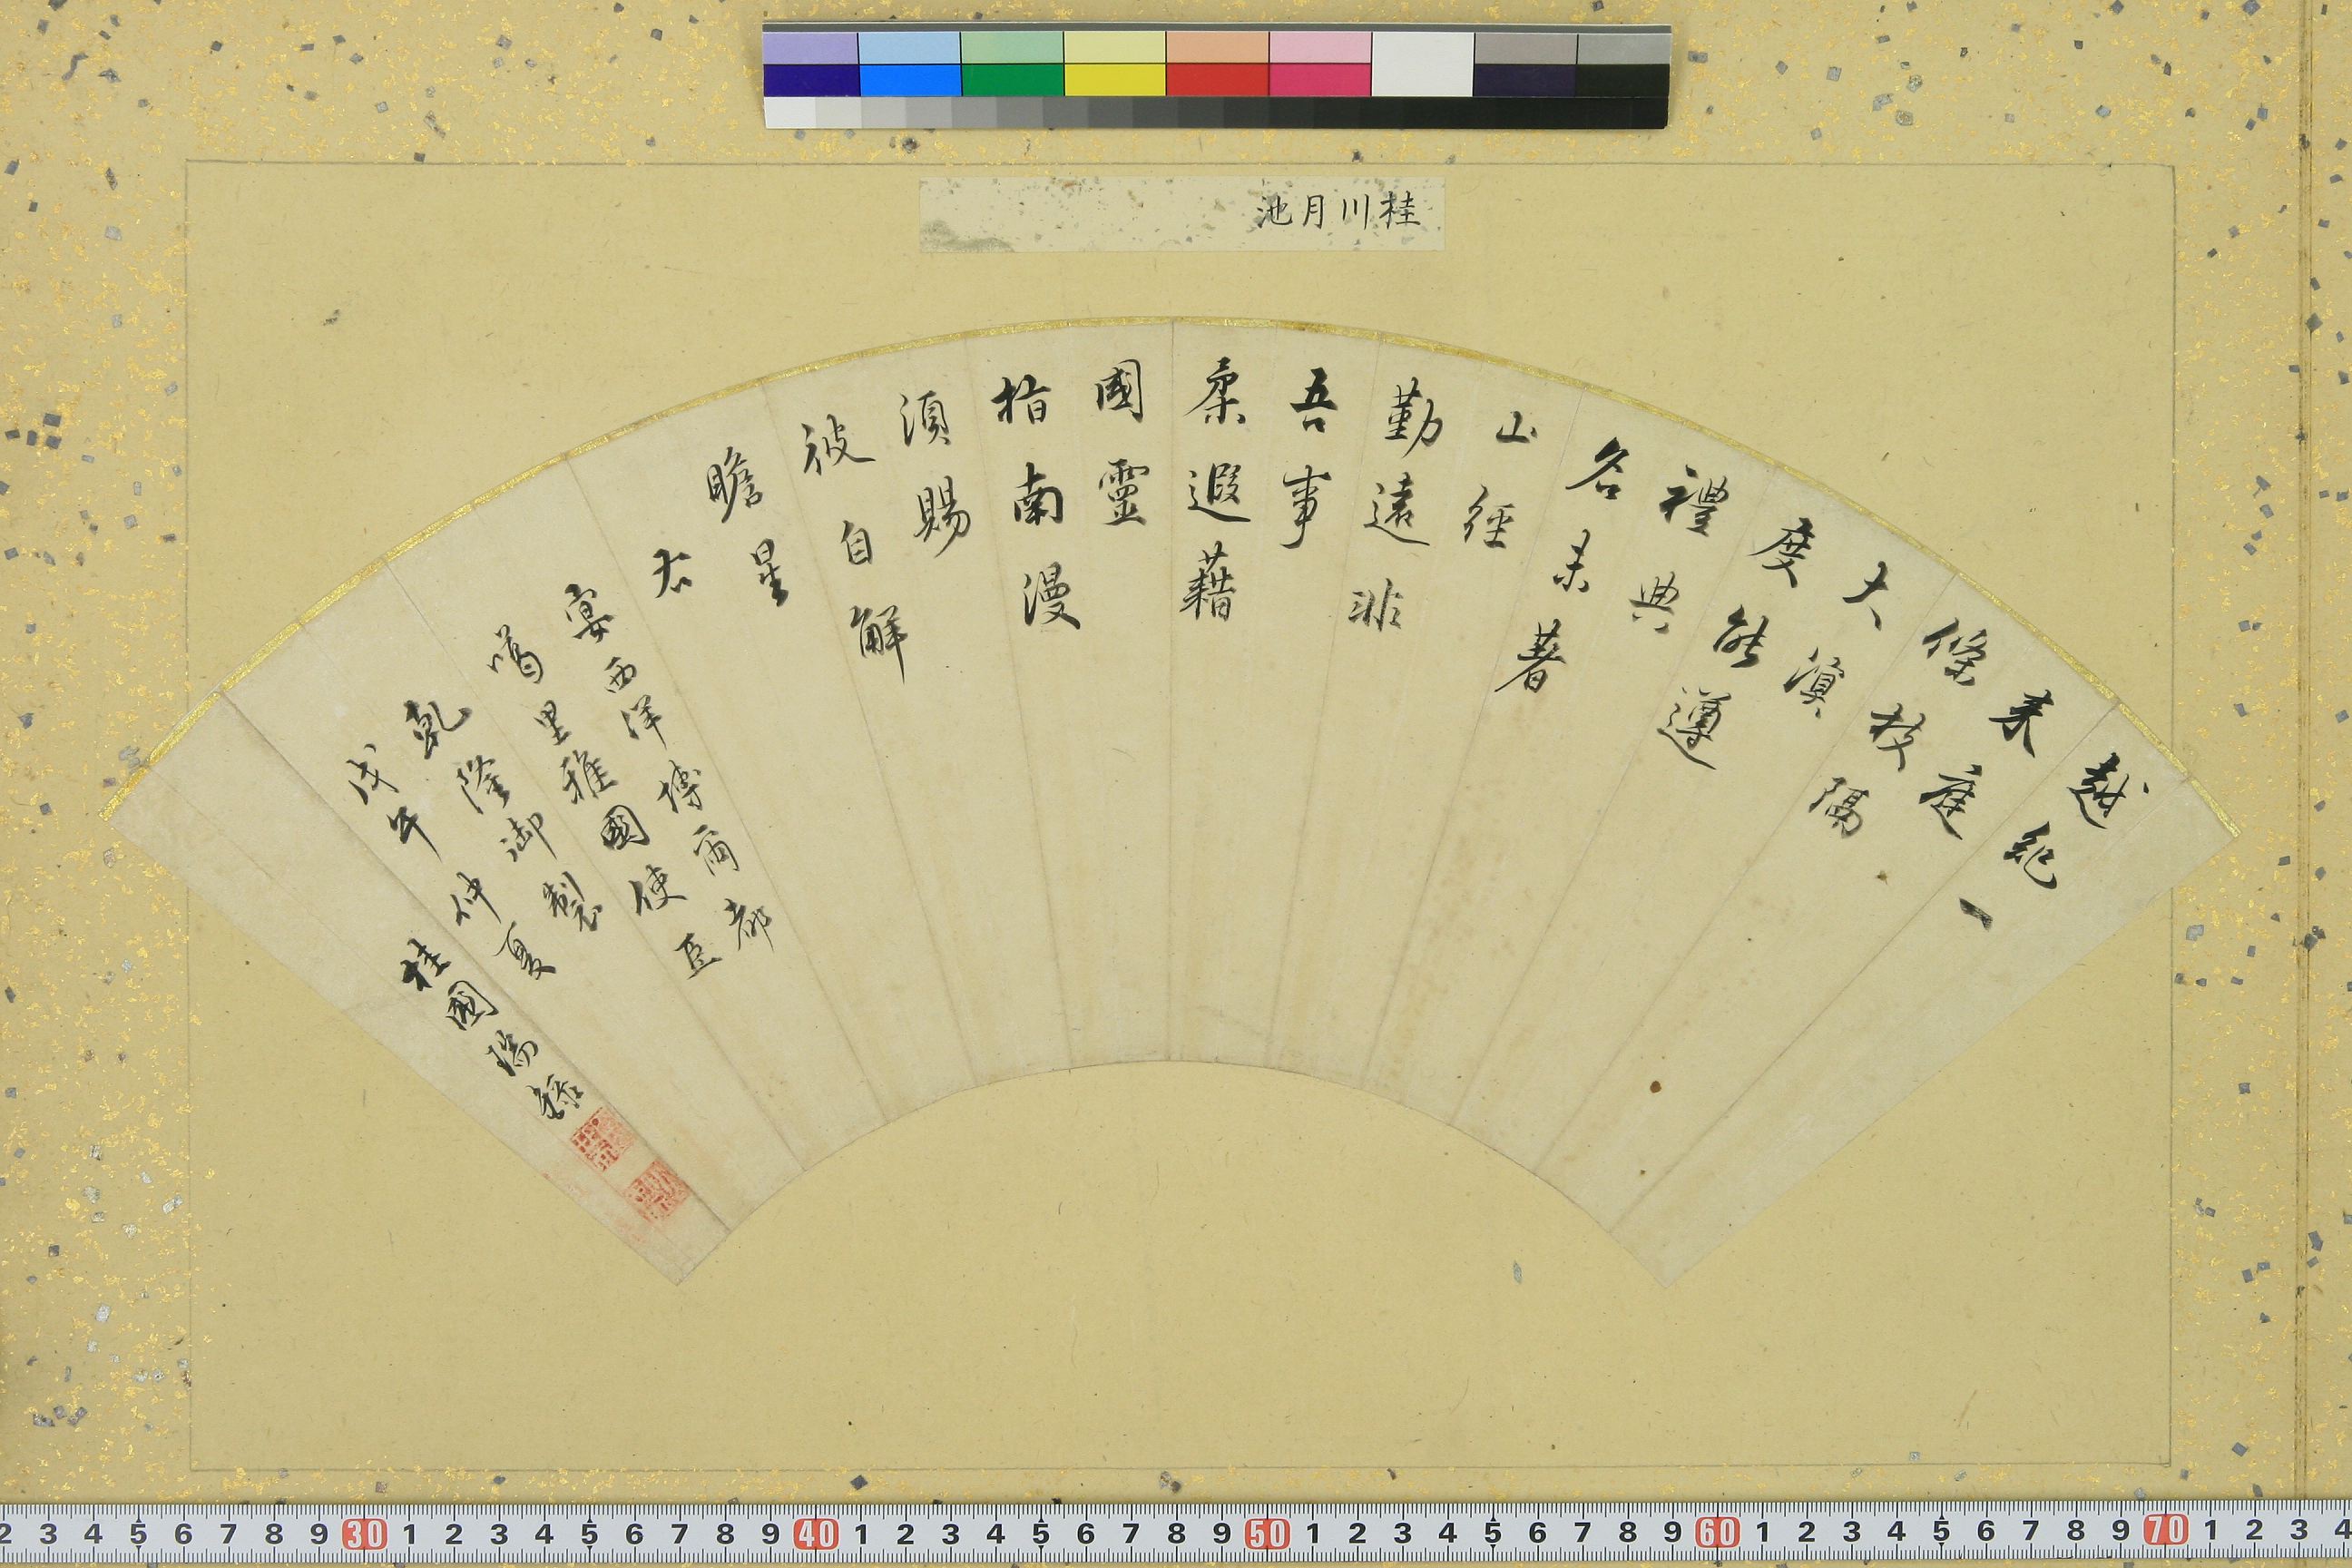 桂川月池
越紀一
来庭
條枝隔
大溟
度能遵
禮典
名未著
山經
勤遠非
吾事
柔遐藉
國靈
指南漫
須賜
彼自解
瞻星
右
宴西洋博爾都
噶里雅國使臣
乾隆御製
戊午仲夏
桂國瑞録
2 3 4 5 6 7 8 9 30 1 2 3 4 5 6 7 8 9 40 1 2 3 4 5 6 7 8 9 50 1 2 3 4 5 6 7 8 9 60 1 2 3 4 5 6 7 8 9 70 1 2 3 4